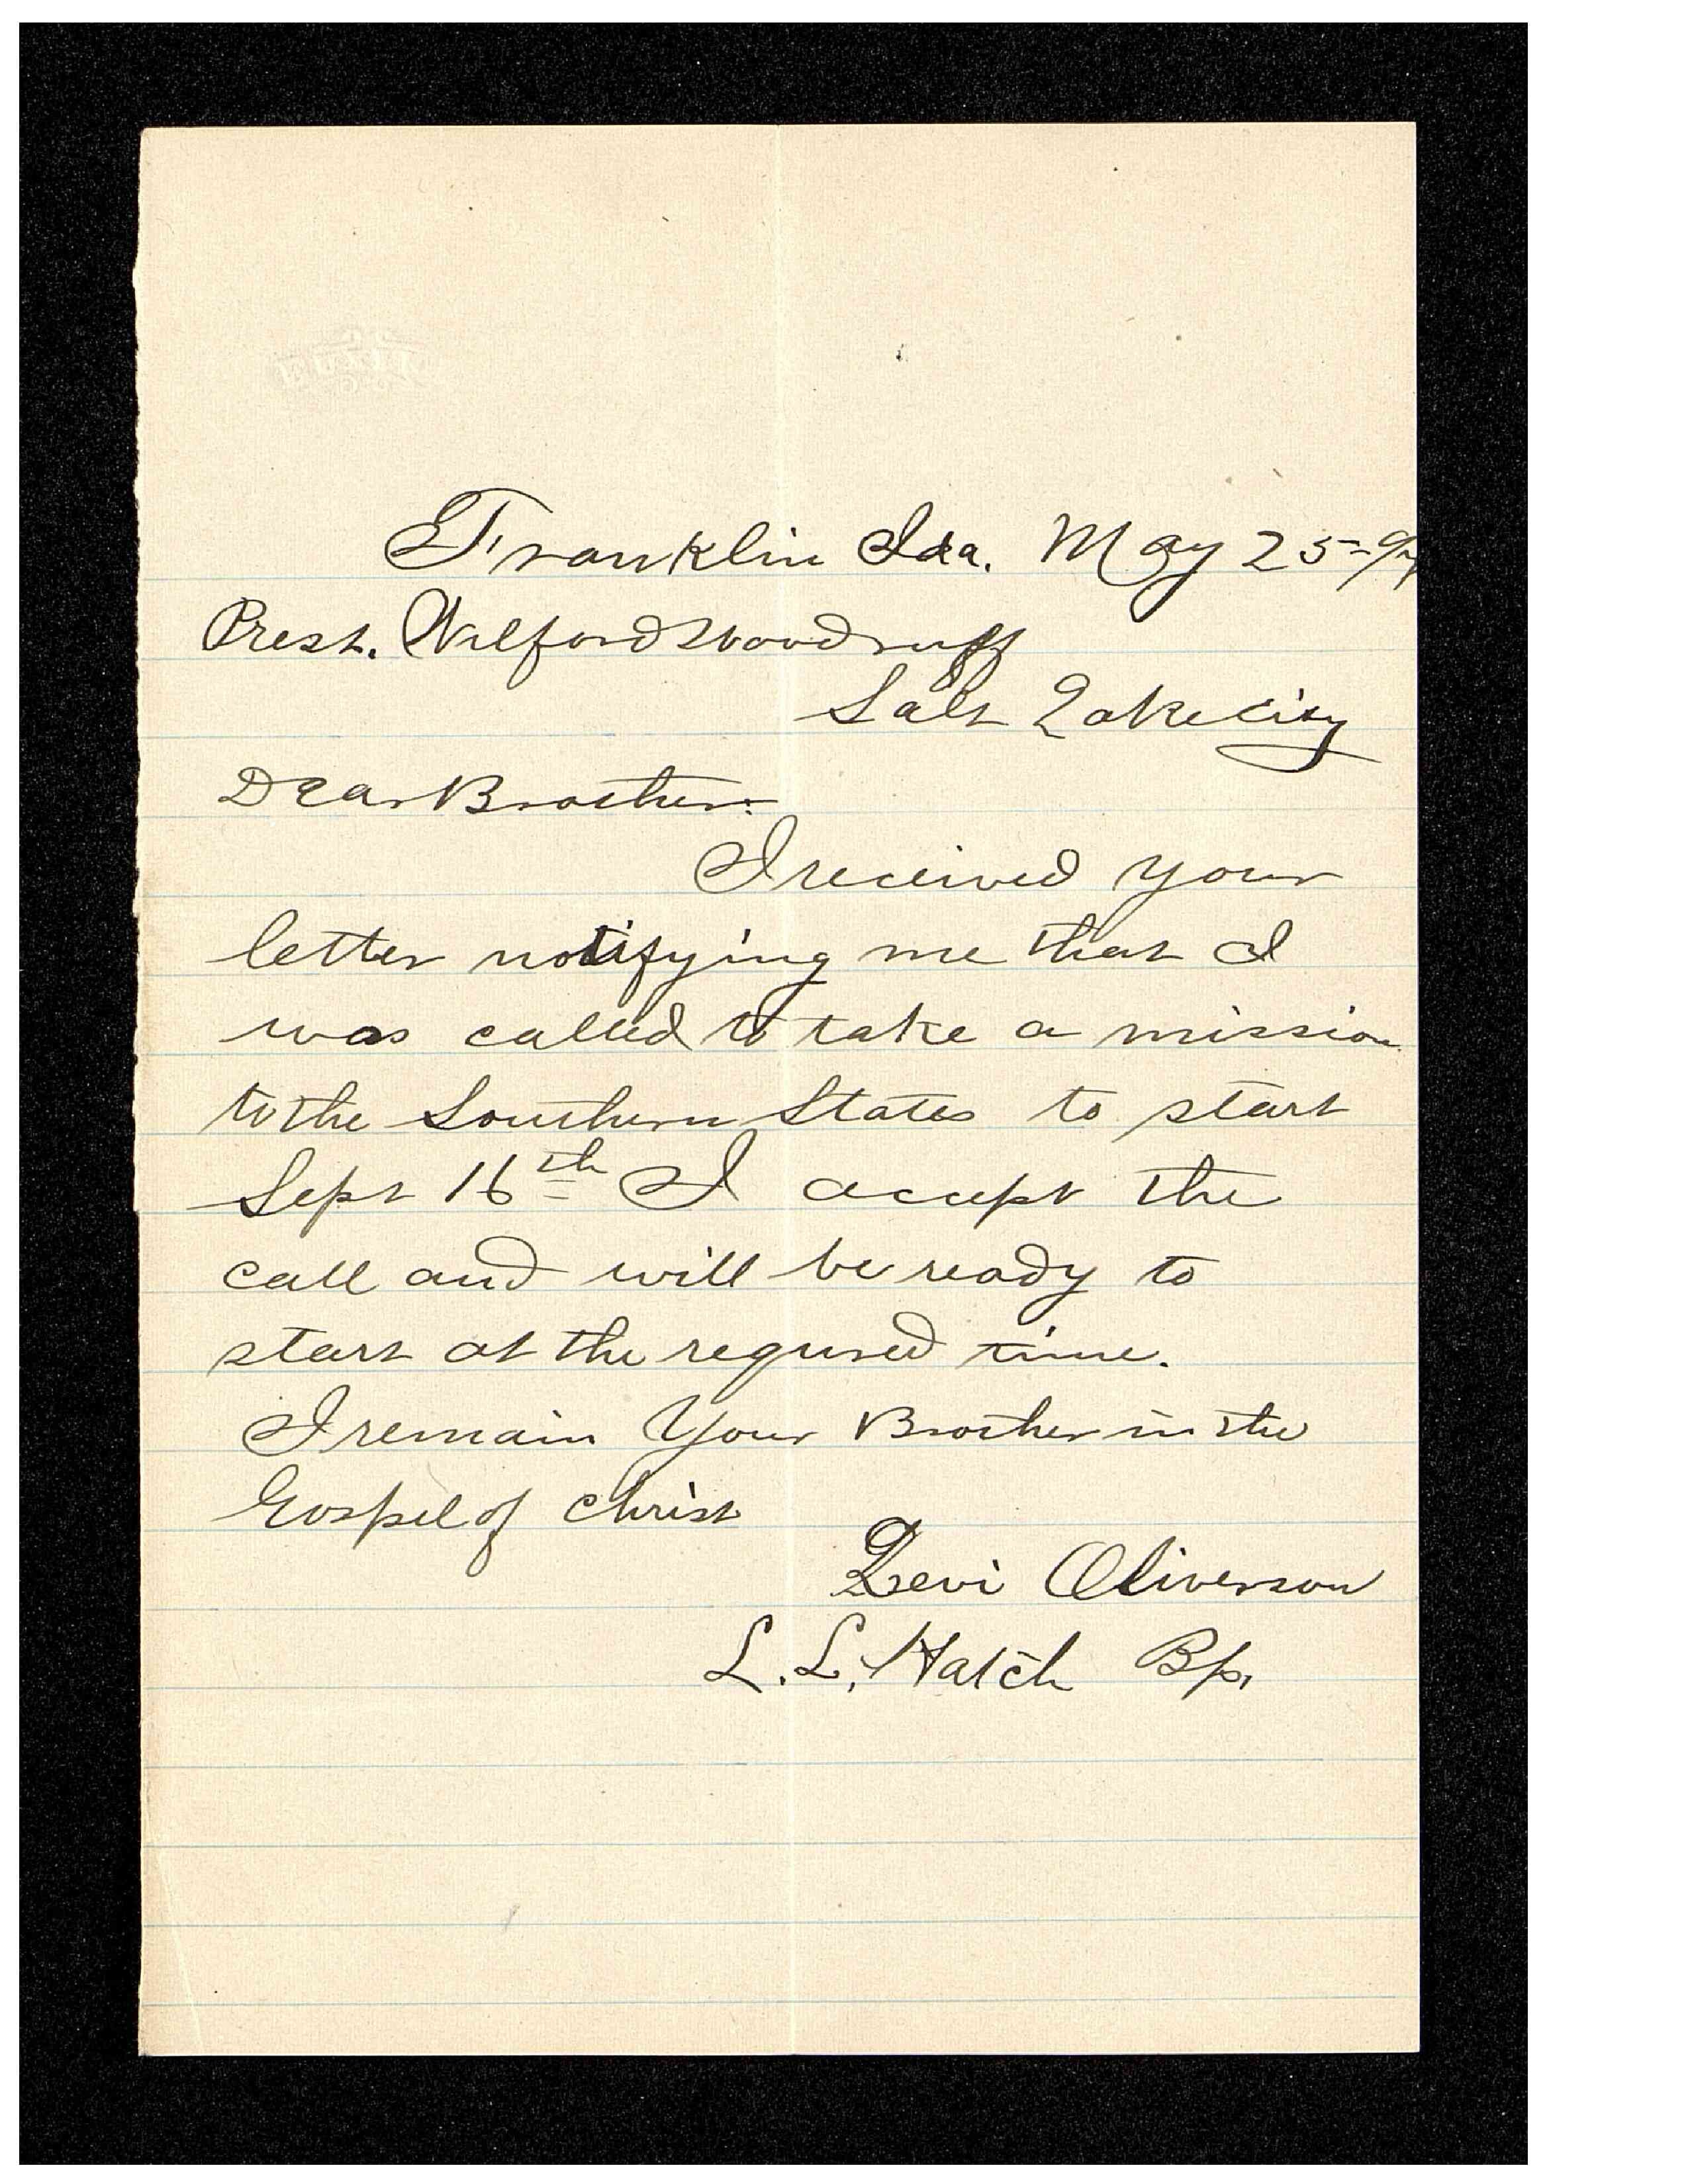 Franklin Ida. May 25-
Prest. Wilford Woodruff
Salt Lake City
Dear Brother:
I received your
letter notifying me that I
was called to take a mission
to the Southern States to start
Sept 16th I accept the
call and will be ready to
start at the requred time.
I remain Your Brother in the
Gospel of Christ
Levi Oliverson
L. L. Hatch Bp.